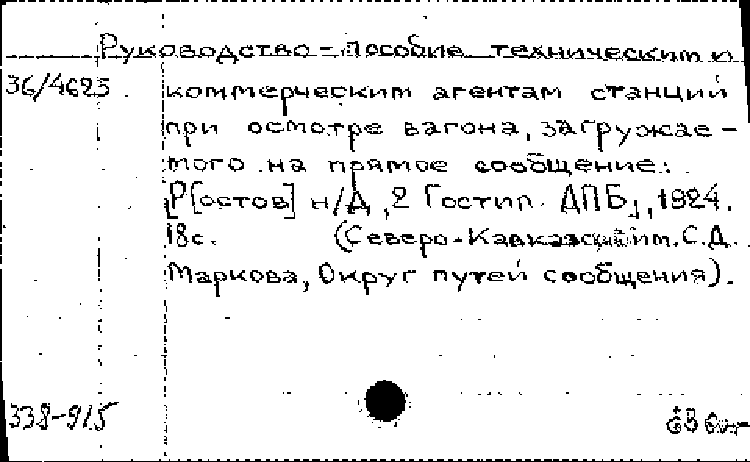 Руководство-пособие техническим и
36/4625. коммерческим агентам станций
при осмотре вагона, загружае-
мого на прямое сообщение.
Р[остов] н/Д, 2 Гостип. ДПБ, 1924.
18с. (Северо-Кавказский им. С.Д.
Маркова, Округ путей сообщения).
338-915